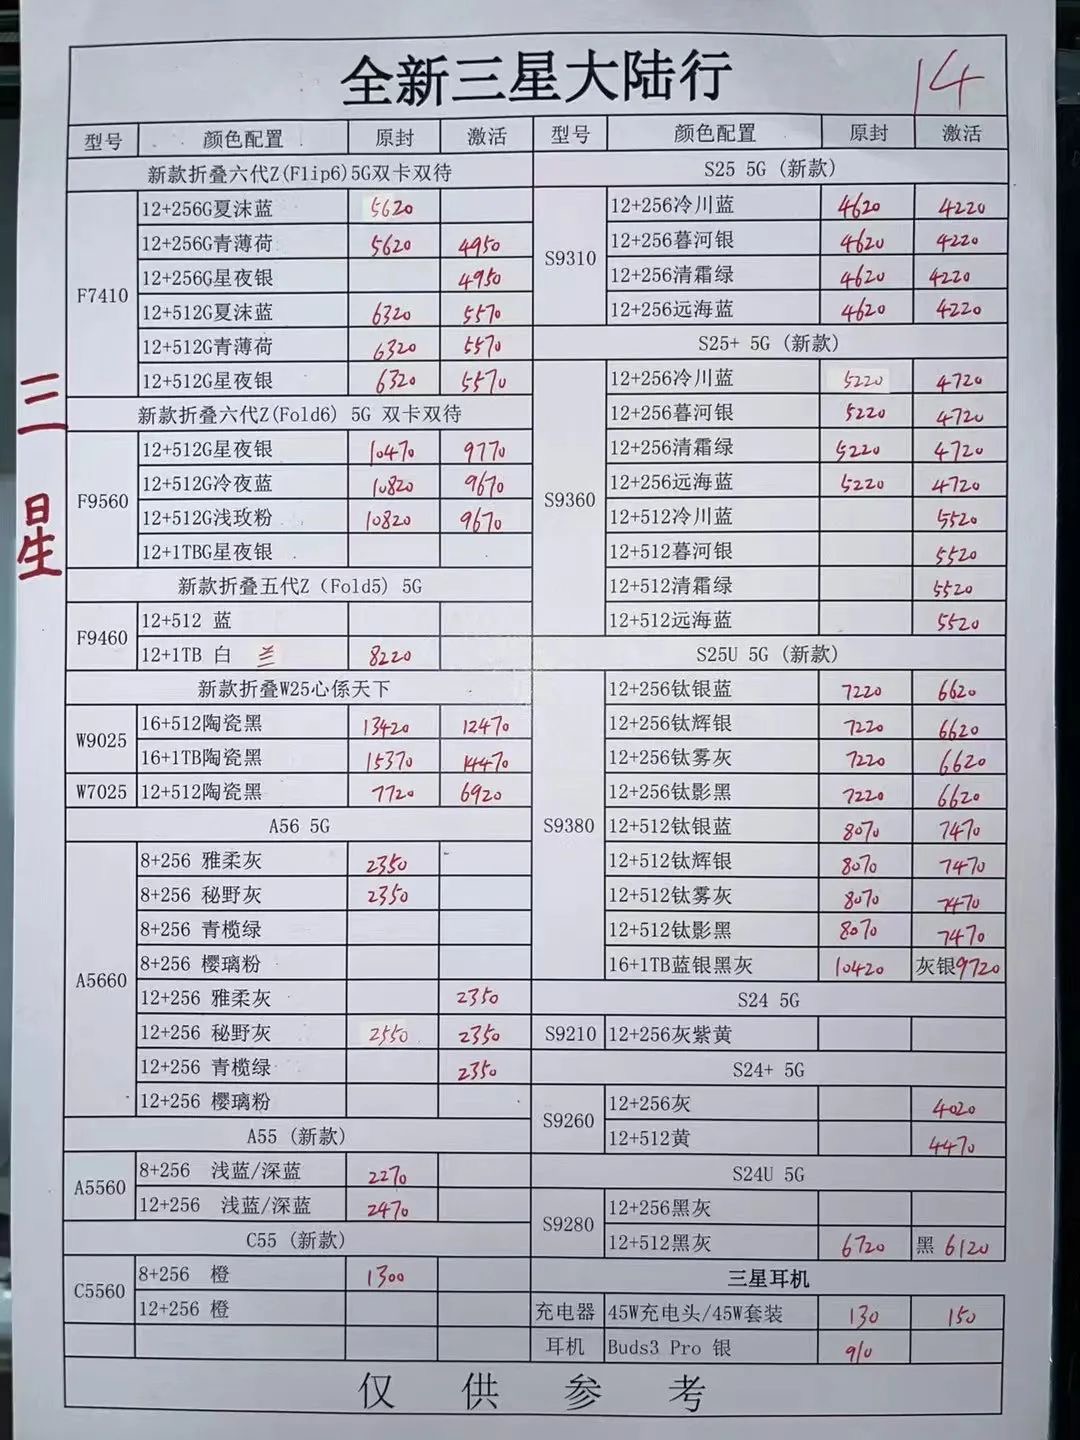 全新三星大陆行
14
三星
型号 颜色配置 原封 激活
新款折叠六代Z(Flip6)5G双卡双待
F7410
12+256G夏沫蓝 5620
12+256G青薄荷 5620 4950
12+256G星夜银 4950
12+512G夏沫蓝 6320 5570
12+512G青薄荷 6320 5570
12+512G星夜银 6320 5570
新款折叠六代Z(Fold6) 5G 双卡双待
F9560
12+512G星夜银 10470 9770
12+512G冷夜蓝 10820 9670
12+512G浅玫粉 10820 9670
12+1TBG星夜银
新款折叠五代Z（Fold5) 5G
F9460
12+512 蓝
12+1TB 白 兰 8220
新款折叠W25心係天下
W9025
16+512陶瓷黑 13420 12470
16+1TB陶瓷黑 15370 14470
W7025 12+512陶瓷黑 7720 6920
A56 5G
A5660
8+256 雅柔灰 2350
8+256 秘野灰 2350
8+256 青榄绿
8+256 樱璃粉
12+256 雅柔灰 2350
12+256 秘野灰 2550 2350
12+256 青榄绿 2350
12+256 樱璃粉
A55 (新款)
A5560
8+256 浅蓝/深蓝 2270
12+256 浅蓝/深蓝 2470
C55 (新款)
C5560
8+256 橙 1300
12+256 橙
型号 颜色配置 原封 激活
S25 5G (新款)
S9310
12+256冷川蓝 4620 4220
12+256暮河银 4620 4220
12+256清霜绿 4620 4220
12+256远海蓝 4620 4220
S25+ 5G (新款)
S9360
12+256冷川蓝 5220 4720
12+256暮河银 5220 4720
12+256清霜绿 5220 4720
12+256远海蓝 5220 4720
12+512冷川蓝 5520
12+512暮河银 5520
12+512清霜绿 5520
12+512远海蓝 5520
S25U 5G (新款)
S9380
12+256钛银蓝 7220 6620
12+256钛辉银 7220 6620
12+256钛雾灰 7220 6620
12+256钛影黑 7220 6620
12+512钛银蓝 8070 7470
12+512钛辉银 8070 7470
12+512钛雾灰 8070 7470
12+512钛影黑 8070 7470
16+1TB蓝银黑灰 10420 灰银9720
S24 5G
S9210 12+256灰紫黄
S24+ 5G
S9260
12+256灰 4020
12+512黄 4470
S24U 5G
S9280
12+256黑灰
12+512黑灰 6720 黑 6120
三星耳机
充电器 45W充电头/45W套装 130 150
耳机 Buds3 Pro 银 910
仅供参考